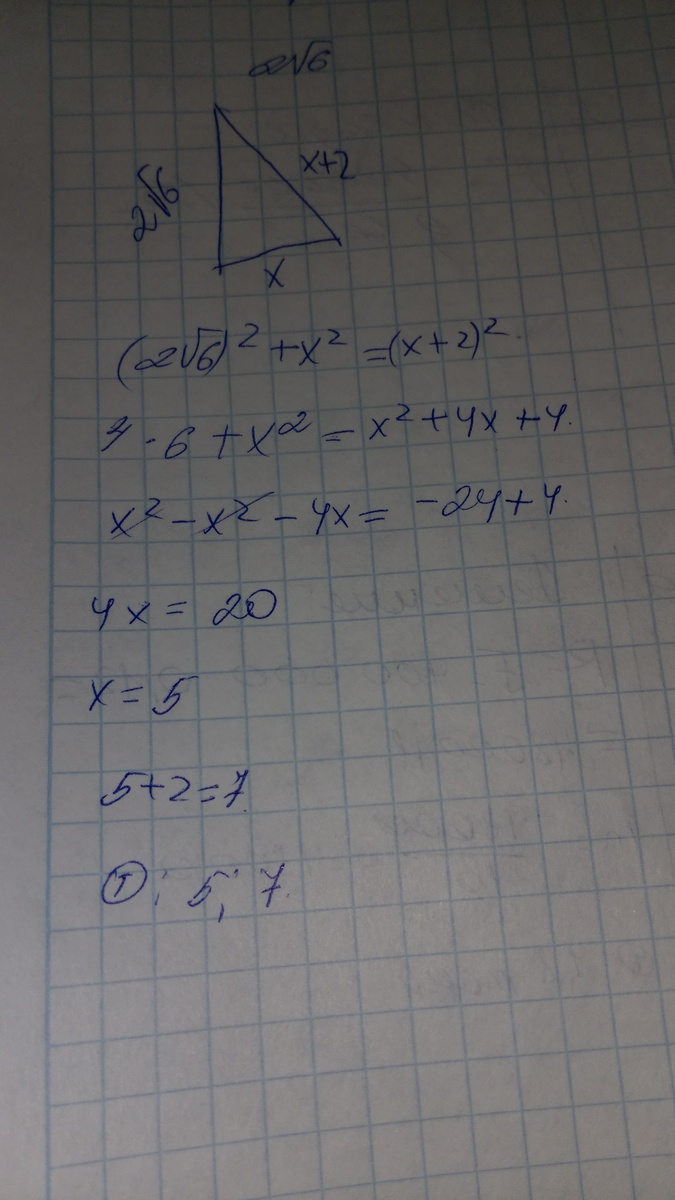 2√6
x+2
2√6
x
(2√6)² + x² = (x+2)²
4 · 6 + x² = x² + 4x + 4.
x² - x² - 4x = -24 + 4.
4x = 20
x = 5
5+2=7
T: 5; 7.